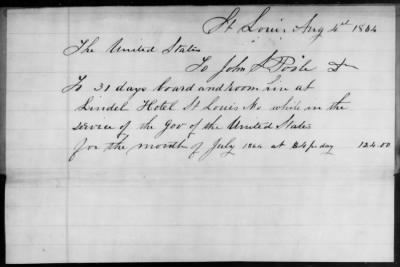 St Louis Aug 4th 1864
The United States
To John S Poole Dr
To 31 days board and room hire at
Lindel Hotel St Louis Mo while in the
service of the Gov of the United States
for the month of July 1864 at $4 pr day 124.00